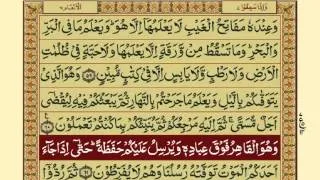 وَعِنْدَهٗ مَفَاتِحُ الْغَيْبِ لَا يَعْلَمُهَاۤ اِلَّا هُوَؕ وَيَعْلَمُ مَا فِى الْبَرِّ
وَالْبَحْرِؕ وَمَا تَسْقُطُ مِنْ وَّرَقَةٍ اِلَّا يَعْلَمُهَا وَلَا حَبَّةٍ فِىْ ظُلُمٰتِ
الْاَرْضِ وَلَا رَطْبٍ وَّلَا يَابِسٍ اِلَّا فِىْ كِتٰبٍ مُّبِيْنٍ ۝۵۹ وَهُوَ الَّذِىْ
يَتَوَفّٰٮكُمْ بِالَّيْلِ وَيَعْلَمُ مَا جَرَحْتُمْ بِالنَّهَارِ ثُمَّ يَبْعَثُكُمْ فِيْهِ لِيُقْضٰٓى
اَجَلٌ مُّسَمًّىۚ ثُمَّ اِلَيْهِ مَرْجِعُكُمْ ثُمَّ يُنَبِّئُكُمْ بِمَا كُنْتُمْ تَعْمَلُوْنَ ۝۶۰
وَهُوَ الْقَاهِرُ فَوْقَ عِبَادِهٖ وَيُرْسِلُ عَلَيْكُمْ حَفَظَةًؕ حَتّٰٓى اِذَا جَآءَ
اَحَدَكُمُ الْمَوْتُ تَوَفَّتْهُ رُسُلُنَا وَهُمْ لَا يُفَرِّطُوْنَ ۝۶۱ ثُمَّ رُدُّوْۤا